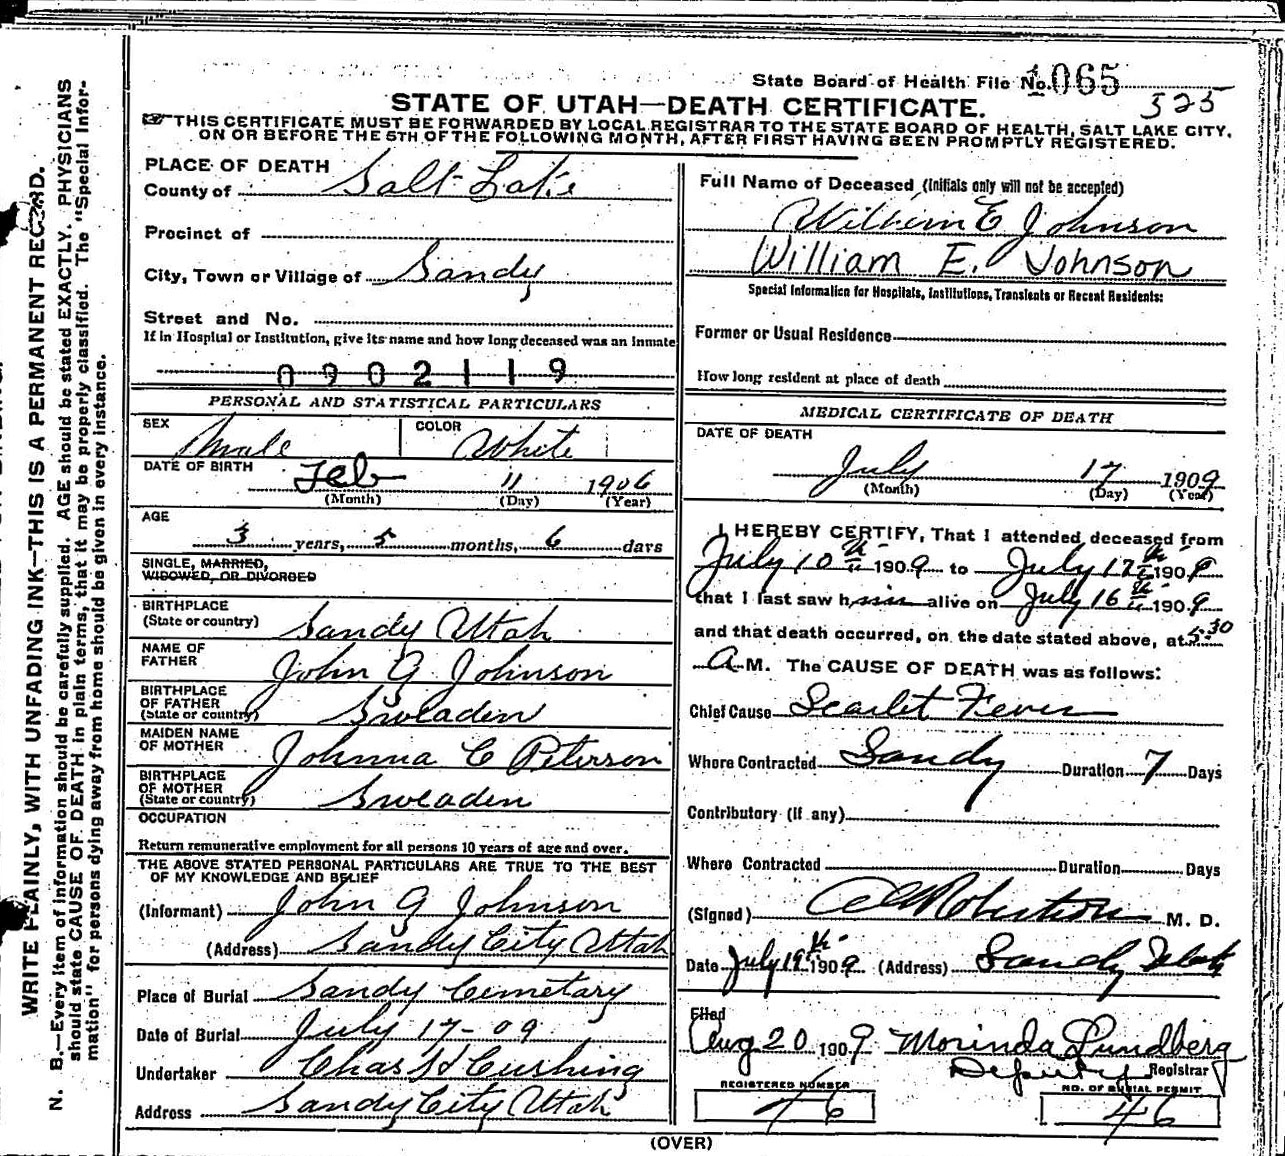 State Board of Health File No. 1065
325
STATE OF UTAH—DEATH CERTIFICATE.
THIS CERTIFICATE MUST BE FORWARDED BY LOCAL REGISTRAR TO THE STATE BOARD OF HEALTH, SALT LAKE CITY,
ON OR BEFORE THE 5TH OF THE FOLLOWING MONTH, AFTER FIRST HAVING BEEN PROMPTLY REGISTERED.
WRITE PLAINLY, WITH UNFADING INK—THIS IS A PERMANENT RECORD.
N. B.—Every item of information should be carefully supplied. AGE should be stated EXACTLY. PHYSICIANS
should state CAUSE OF DEATH in plain terms, that it may be properly classified. The "Special Infor-
mation" for persons dying away from home should be given in every instance.
PLACE OF DEATH
County of Salt Lake
Precinct of
City, Town or Village of Sandy
Street and No.
If in Hospital or Institution, give its name and how long deceased was an inmate
0902119
PERSONAL AND STATISTICAL PARTICULARS
SEX Male COLOR White
DATE OF BIRTH Feb 11 1906
(Month) (Day) (Year)
AGE
3 years, 5 months, 6 days
SINGLE, MARRIED,
WIDOWED, OR DIVORCED
BIRTHPLACE
(State or country) Sandy Utah
NAME OF
FATHER John G Johnson
BIRTHPLACE
OF FATHER
(State or country) Sweaden
MAIDEN NAME
OF MOTHER Johnna C Peterson
BIRTHPLACE
OF MOTHER
(State or country) Sweaden
OCCUPATION
Return remunerative employment for all persons 10 years of age and over.
THE ABOVE STATED PERSONAL PARTICULARS ARE TRUE TO THE BEST
OF MY KNOWLEDGE AND BELIEF
(Informant) John G Johnson
(Address) Sandy City Utah
Place of Burial Sandy Cemetary
Date of Burial July 17-09
Undertaker Chas H Cushing
Address Sandy City Utah
Full Name of Deceased (Initials only will not be accepted)
William E Johnson
William E. Johnson
Special Information for Hospitals, Institutions, Transients or Recent Residents:
Former or Usual Residence
How long resident at place of death
MEDICAL CERTIFICATE OF DEATH
DATE OF DEATH
July 17 1909
(Month) (Day) (Year)
I HEREBY CERTIFY, That I attended deceased from
July 10th 1909 to July 17th 1909
that I last saw him alive on July 16th 1909
and that death occurred, on the date stated above, at 5:30
A M. The CAUSE OF DEATH was as follows:
Chief Cause Scarlet Fever
Where Contracted Sandy Duration 7 Days
Contributory (if any)
Where Contracted Duration Days
(Signed) Robertson M. D.
Date July 19th 1909 (Address) Sandy Utah
Filed
Aug 20 1909 Morinda Lundberg
Deputy Registrar
REGISTERED NUMBER
46
NO. OF BURIAL PERMIT
46
(OVER)